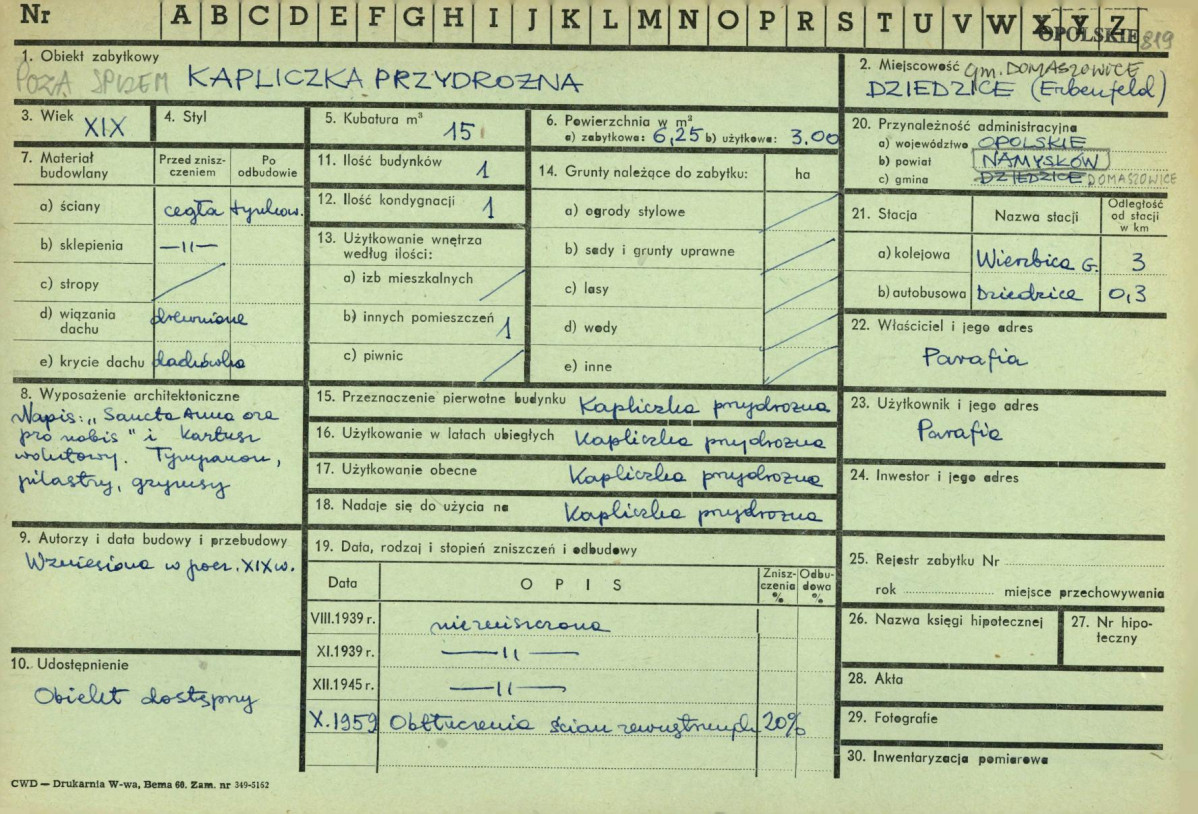 Nr A B C D E F G H I J K L M N O P R S T U V W X Y Z
OPOLSKIE 819
1. Obiekt zabytkowy
POZA SPISEM KAPLICZKA PRZYDROŻNA
2. Miejscowość gm. DOMASZOWICE
DZIEDZICE (Erbenfeld)
3. Wiek XIX
4. Styl
5. Kubatura m³ 15
6. Powierzchnia w m²
a) zabytkowa: 6,25 b) użytkowa: 3.00
7. Materiał budowlany
Przed zniszczeniem
Po odbudowie
a) ściany cegła tynkow.
b) sklepienia —11—
c) stropy
d) wiązania dachu drewniane
e) krycie dachu dachówka
8. Wyposażenie architektoniczne
Napis: „Sancta Anna ora
pro nobis" i kartusz
wolutowy. Tympanon,
pilastry, gzymsy
9. Autorzy i data budowy i przebudowy
Wzniesiona w pocz. XIX w.
10. Udostępnienie
Obiekt dostępny
11. Ilość budynków 1
12. Ilość kondygnacji 1
13. Użytkowanie wnętrza
według ilości:
a) izb mieszkalnych
b) innych pomieszczeń 1
c) piwnic
14. Grunty należące do zabytku: ha
a) ogrody stylowe
b) sady i grunty uprawne
c) lasy
d) wody
e) inne
15. Przeznaczenie pierwotne budynku Kapliczka przydrożna
16. Użytkowanie w latach ubiegłych Kapliczka przydrożna
17. Użytkowanie obecne Kapliczka przydrożna
18. Nadaje się do użycia na Kapliczka przydrożna
19. Data, rodzaj i stopień zniszczeń i odbudowy
Data O P I S Zniszczenia % Odbudowa %
VIII.1939 r. niezniszczona
XI.1939 r. —11—
XII.1945 r. —11—
X.1959 Obtłuczenia ścian zewnętrznych 20%
20. Przynależność administracyjna
a) województwo OPOLSKIE
b) powiat NAMYSŁÓW
c) gmina DZIEDZICE DOMASZOWICE
21. Stacja Nazwa stacji Odległość od stacji w km
a) kolejowa Wierzbica G. 3
b) autobusowa Dziedzice 0,3
22. Właściciel i jego adres
Parafia
23. Użytkownik i jego adres
Parafia
24. Inwestor i jego adres
25. Rejestr zabytku Nr
rok miejsce przechowywania
26. Nazwa księgi hipotecznej
27. Nr hipoteczny
28. Akta
29. Fotografie
30. Inwentaryzacja pomiarowa
CWD — Drukarnia W-wa, Bema 60. Zam. nr 349-5162